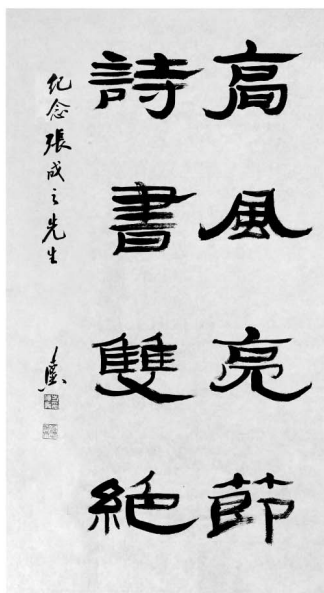 高風亮節
詩書雙絕
紀念張成之先生